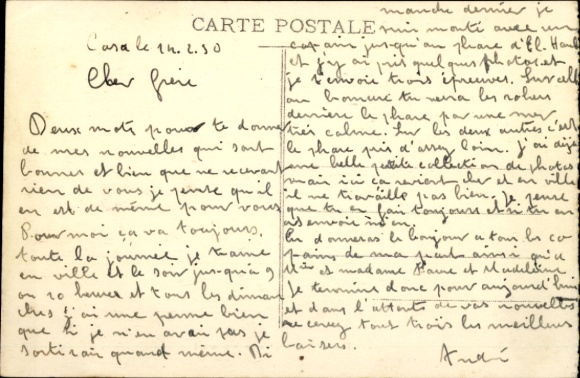 CARTE POSTALE
Casa le 14.2.30
Cher frère
Deux mots pour te donner
de mes nouvelles qui sont
bonnes et bien que ne recevant
rien de vous je pense qu'il
en est de même pour vous
Pour moi ça va toujours,
toute la journée je traine
en ville et le soir jusqu'a 9
ou 10 heures et tous les diman
ches j'ai une perme bien
que si je n'en avais pas je
sortirais quand même. Di
manche dernier je
suis monté avec un
copain jusqu'au phare d'El. Hank
et j'y ai pris quelques photos et
je t'envoie trois épreuves. Sur celle
au tu verra les rochers
derrière le phare par une mer
très calme. Sur les deux autres c'est
le phare pris d'assez loin. j'ai déjà
une belle petite collection de photos
mais ici ça revient cher et en ville
il ne travaille pas bien. Je pense
que tu en fais toujours et si tu en
as envoie m'en.
Tu donneras le bonjour a tous les co
pains de ma part ainsi qu'a
et madame et Madeleine
Je termine donc pour aujourd'hui
et dans l'attente de vos nouvelles
recevez tous trois les meilleurs
baisers.
André